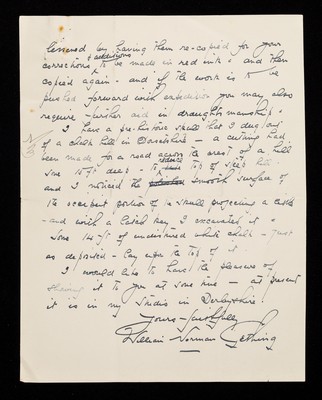 lessened by having them re-copied for your
corrections & additions to be made in red ink - and then
copied again - and if the work is to be
pushed forward with expedition you may also
require further aid in draughtsmanship.
I have a pre-historic skull that I dug out
of a chalk hill in Dorsetshire - a cutting had
been made for a road across the crest of a hill
some 15 ft deep - to reduce top of steep hill -
and I noticed the smooth surface of
the occiput portion of a skull projecting a little
- and with a latch key I excavated it -
Some 14 ft of undisturbed white chalk - just
as deposited - lay upon the top of it
I would like to have the pleasure of
showing it to you at some time - at present
it is in my studio in Derbyshire
Yours faithfully
William Norman Gething